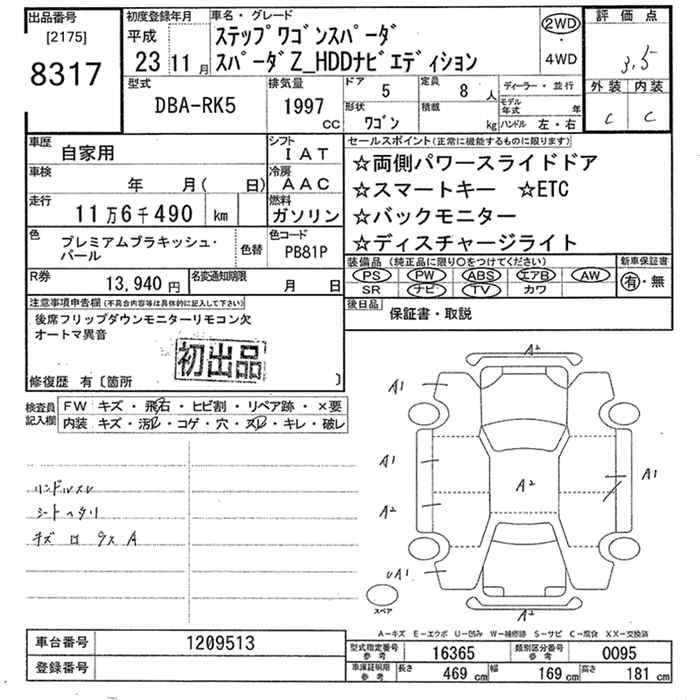 出品番号
[2175]
8317
初度登録年月
平成
23 11 月
車名・グレード
ステップワゴンスパーダ
スパーダZ_HDDナビエディション
2WD
・
4WD
評価点
3.5
外装 内装
C C
型式
DBA-RK5
排気量
1997
CC
ドア 5
定員 8 人
形状 ワゴン
積載 kg
ディーラー・並行
モデル年式 年
ハンドル 左・右
車歴 自家用
シフト IAT
車検 年 月( 日)
冷房 AAC
走行 11万6千490 km
燃料 ガソリン
色 プレミアムブラキッシュ・パール
色替
色コード PB81P
R券 13,940 円
名変通知期限 月 日
セールスポイント(正常に機能するものに限ります)
☆両側パワースライドドア
☆スマートキー ☆ETC
☆バックモニター
☆ディスチャージライト
装備品 (純正品に限り○をつけてください)
PS PW ABS エアB AW
SR ナビ TV カワ
新車保証書
有・無
後日品 保証書・取説
注意事項申告欄(不具合内容等は具体的に記入して下さい)
後席フリップダウンモニターリモコン欠
オートマ異音
初出品
修復歴 有〔箇所 〕
検査員記入欄
FW キズ・飛石・ヒビ割・リペア跡・×要
内装 キズ・汚れ・コゲ・穴・スレ・キレ・破レ
ハンドルスレ
シートヘタリ
A2
A1
A1
A1
A2
A2
UA1
A2
スペア
A−キズ E−エクボ U−凹み W−補修跡 S−サビ C−腐食 XX−交換済
車台番号 1209513
登録番号
型式指定番号 参考 16365
類別区分番号 参考 0095
車庫証明用 参考 長さ 469 cm 幅 169 cm 高さ 181 cm